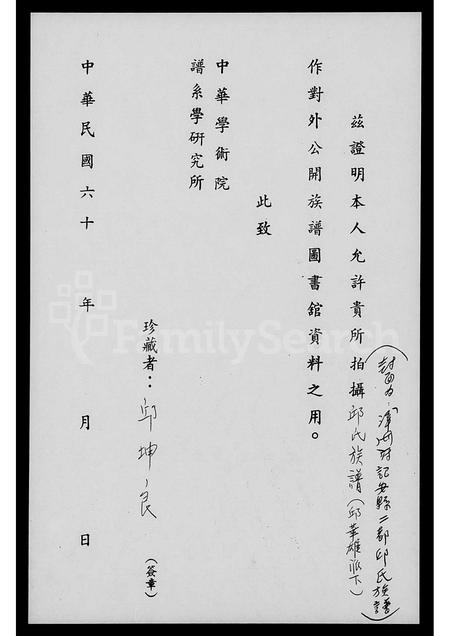 茲證明本人允許貴所拍攝邱氏族譜(邱華雄派下)
(封面為:漳州府詔安縣二都邱氏族譜)
作對外公開族譜圖書舘資料之用。
此致
中華學術院
譜系學研究所
珍藏者：邱坤良
(簽章)
中華民國六十 年 月 日
FamilySearch